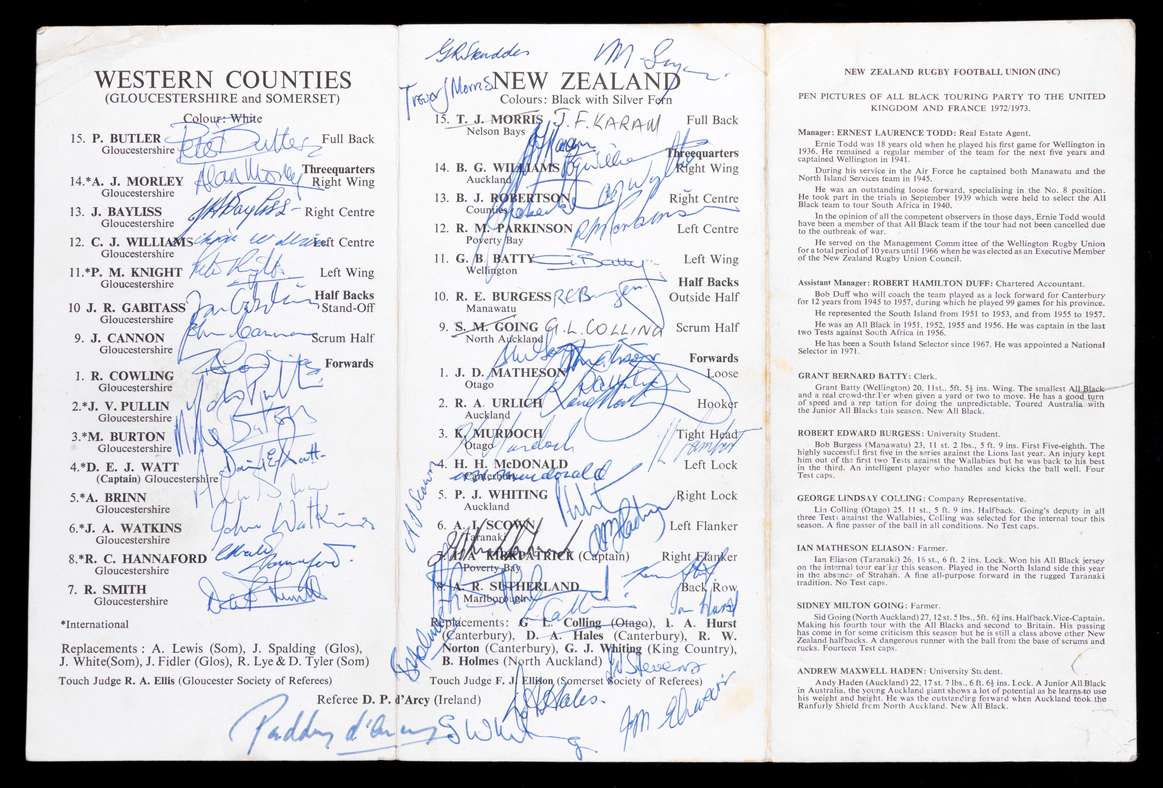 WESTERN COUNTIES
(GLOUCESTERSHIRE and SOMERSET)
Colour: White
15. P. BUTLER Full Back
Gloucestershire
Pete Butler
Threequarters
14.*A. J. MORLEY Right Wing
Gloucestershire
Alan Morley
13. J. BAYLISS Right Centre
Gloucestershire
J A Bayliss
12. C. J. WILLIAMS Left Centre
Gloucestershire
11.*P. M. KNIGHT Left Wing
Gloucestershire
Pete Knight
Half Backs
10 J. R. GABITASS Stand-Off
Gloucestershire
9. J. CANNON Scrum Half
Gloucestershire
John Cannon
Forwards
1. R. COWLING
Gloucestershire
2.*J. V. PULLIN
Gloucestershire
3.*M. BURTON
Gloucestershire
Mike Burton
4.*D. E. J. WATT
(Captain) Gloucestershire
David E J Watt
5.*A. BRINN
Gloucestershire
6.*J. A. WATKINS
Gloucestershire
John Watkins
8.*R. C. HANNAFORD
Gloucestershire
7. R. SMITH
Gloucestershire
*International
Replacements : A. Lewis (Som), J. Spalding (Glos),
J. White(Som), J. Fidler (Glos), R. Lye & D. Tyler (Som)
Touch Judge R. A. Ellis (Gloucester Society of Referees)
Referee D. P. d'Arcy (Ireland)
Paddy d'Arcy
GR Skudder
Trevor J Morris
NEW ZEALAND
Colours: Black with Silver Fern
15. T. J. MORRIS J. F. KARAM Full Back
Nelson Bays
Threequarters
14. B. G. WILLIAMS Right Wing
Auckland
13. B. J. ROBERTSON Right Centre
Counties
12. R. M. PARKINSON Left Centre
Poverty Bay
R M Parkinson
11. G. B. BATTY Left Wing
Wellington
G Batty
Half Backs
10. R. E. BURGESS Outside Half
Manawatu
R E Burgess
9. S. M. GOING G. L. COLLING Scrum Half
North Auckland
Forwards
1. J. D. MATHESON Loose
Otago
2. R. A. URLICH Hooker
Auckland
3. K. MURDOCH Tight Head
Otago
K Murdoch
4. H. H. McDONALD Left Lock
Canterbury
5. P. J. WHITING Right Lock
Auckland
6. A. I. SCOWN Left Flanker
Taranaki
7. I. A. KIRKPATRICK (Captain) Right Flanker
Poverty Bay
8. A. R. SUTHERLAND Back Row
Marlborough
Ian Hurst
Replacements: G. L. Colling (Otago), I. A. Hurst
(Canterbury), D. A. Hales (Canterbury), R. W.
Norton (Canterbury), G. J. Whiting (King Country),
B. Holmes (North Auckland)
Touch Judge F. J. Ellison (Somerset Society of Referees)
NEW ZEALAND RUGBY FOOTBALL UNION (INC)
PEN PICTURES OF ALL BLACK TOURING PARTY TO THE UNITED
KINGDOM AND FRANCE 1972/1973.
Manager: ERNEST LAURENCE TODD: Real Estate Agent.
Ernie Todd was 18 years old when he played his first game for Wellington in
1936. He remained a regular member of the team for the next five years and
captained Wellington in 1941.
During his service in the Air Force he captained both Manawatu and the
North Island Services team in 1945.
He was an outstanding loose forward, specialising in the No. 8 position.
He took part in the trials in September 1939 which were held to select the All
Black team to tour South Africa in 1940.
In the opinion of all the competent observers in those days, Ernie Todd would
have been a member of that All Black team if the tour had not been cancelled due
to the outbreak of war.
He served on the Management Committee of the Wellington Rugby Union
for a total period of 10 years until 1966 when he was elected as an Executive Member
of the New Zealand Rugby Union Council.
Assistant Manager: ROBERT HAMILTON DUFF: Chartered Accountant.
Bob Duff who will coach the team played as a lock forward for Canterbury
for 12 years from 1945 to 1957, during which he played 99 games for his province.
He represented the South Island from 1951 to 1953, and from 1955 to 1957.
He was an All Black in 1951, 1952, 1955 and 1956. He was captain in the last
two Tests against South Africa in 1956.
He has been a South Island Selector since 1967. He was appointed a National
Selector in 1971.
GRANT BERNARD BATTY: Clerk.
Grant Batty (Wellington) 20, 11st., 5ft. 5½ ins. Wing. The smallest All Black
and a real crowd-thriller when given a yard or two to move. He has a good turn
of speed and a rep tation for doing the unpredictable. Toured Australia with
the Junior All Blacks this season. New All Black.
ROBERT EDWARD BURGESS: University Student.
Bob Burgess (Manawatu) 23, 11 st. 2 lbs., 5 ft. 9 ins. First Five-eighth. The
highly successful first five in the series against the Lions last year. An injury kept
him out of the first two Tests against the Wallabies but he was back to his best
in the third. An intelligent player who handles and kicks the ball well. Four
Test caps.
GEORGE LINDSAY COLLING: Company Representative.
Lin Colling (Otago) 25, 11 st., 5 ft. 9 ins. Halfback. Going's deputy in all
three Tests against the Wallabies, Colling was selected for the internal tour this
season. A fine passer of the ball in all conditions. No Test caps.
IAN MATHESON ELIASON: Farmer.
Ian Eliason (Taranaki) 26, 16 st., 6 ft. 2 ins. Lock. Won his All Black jersey
on the internal tour earlier this season. Played in the North Island side this year
in the absence of Strahan. A fine all-purpose forward in the rugged Taranaki
tradition. No Test caps.
SIDNEY MILTON GOING: Farmer.
Sid Going (North Auckland) 27, 12 st. 5 lbs., 5ft. 6½ ins. Halfback. Vice-Captain.
Making his fourth tour with the All Blacks and second to Britain. His passing
has come in for some criticism this season but he is still a class above other New
Zealand halfbacks. A dangerous runner with the ball from the base of scrums and
rucks. Fourteen Test caps.
ANDREW MAXWELL HADEN: University Student.
Andy Haden (Auckland) 22, 17 st. 7 lbs., 6 ft. 6½ ins. Lock. A Junior All Black
in Australia, the young Auckland giant shows a lot of potential as he learns to use
his weight and height. He was the outstanding forward when Auckland took the
Ranfurly Shield from North Auckland. New All Black.